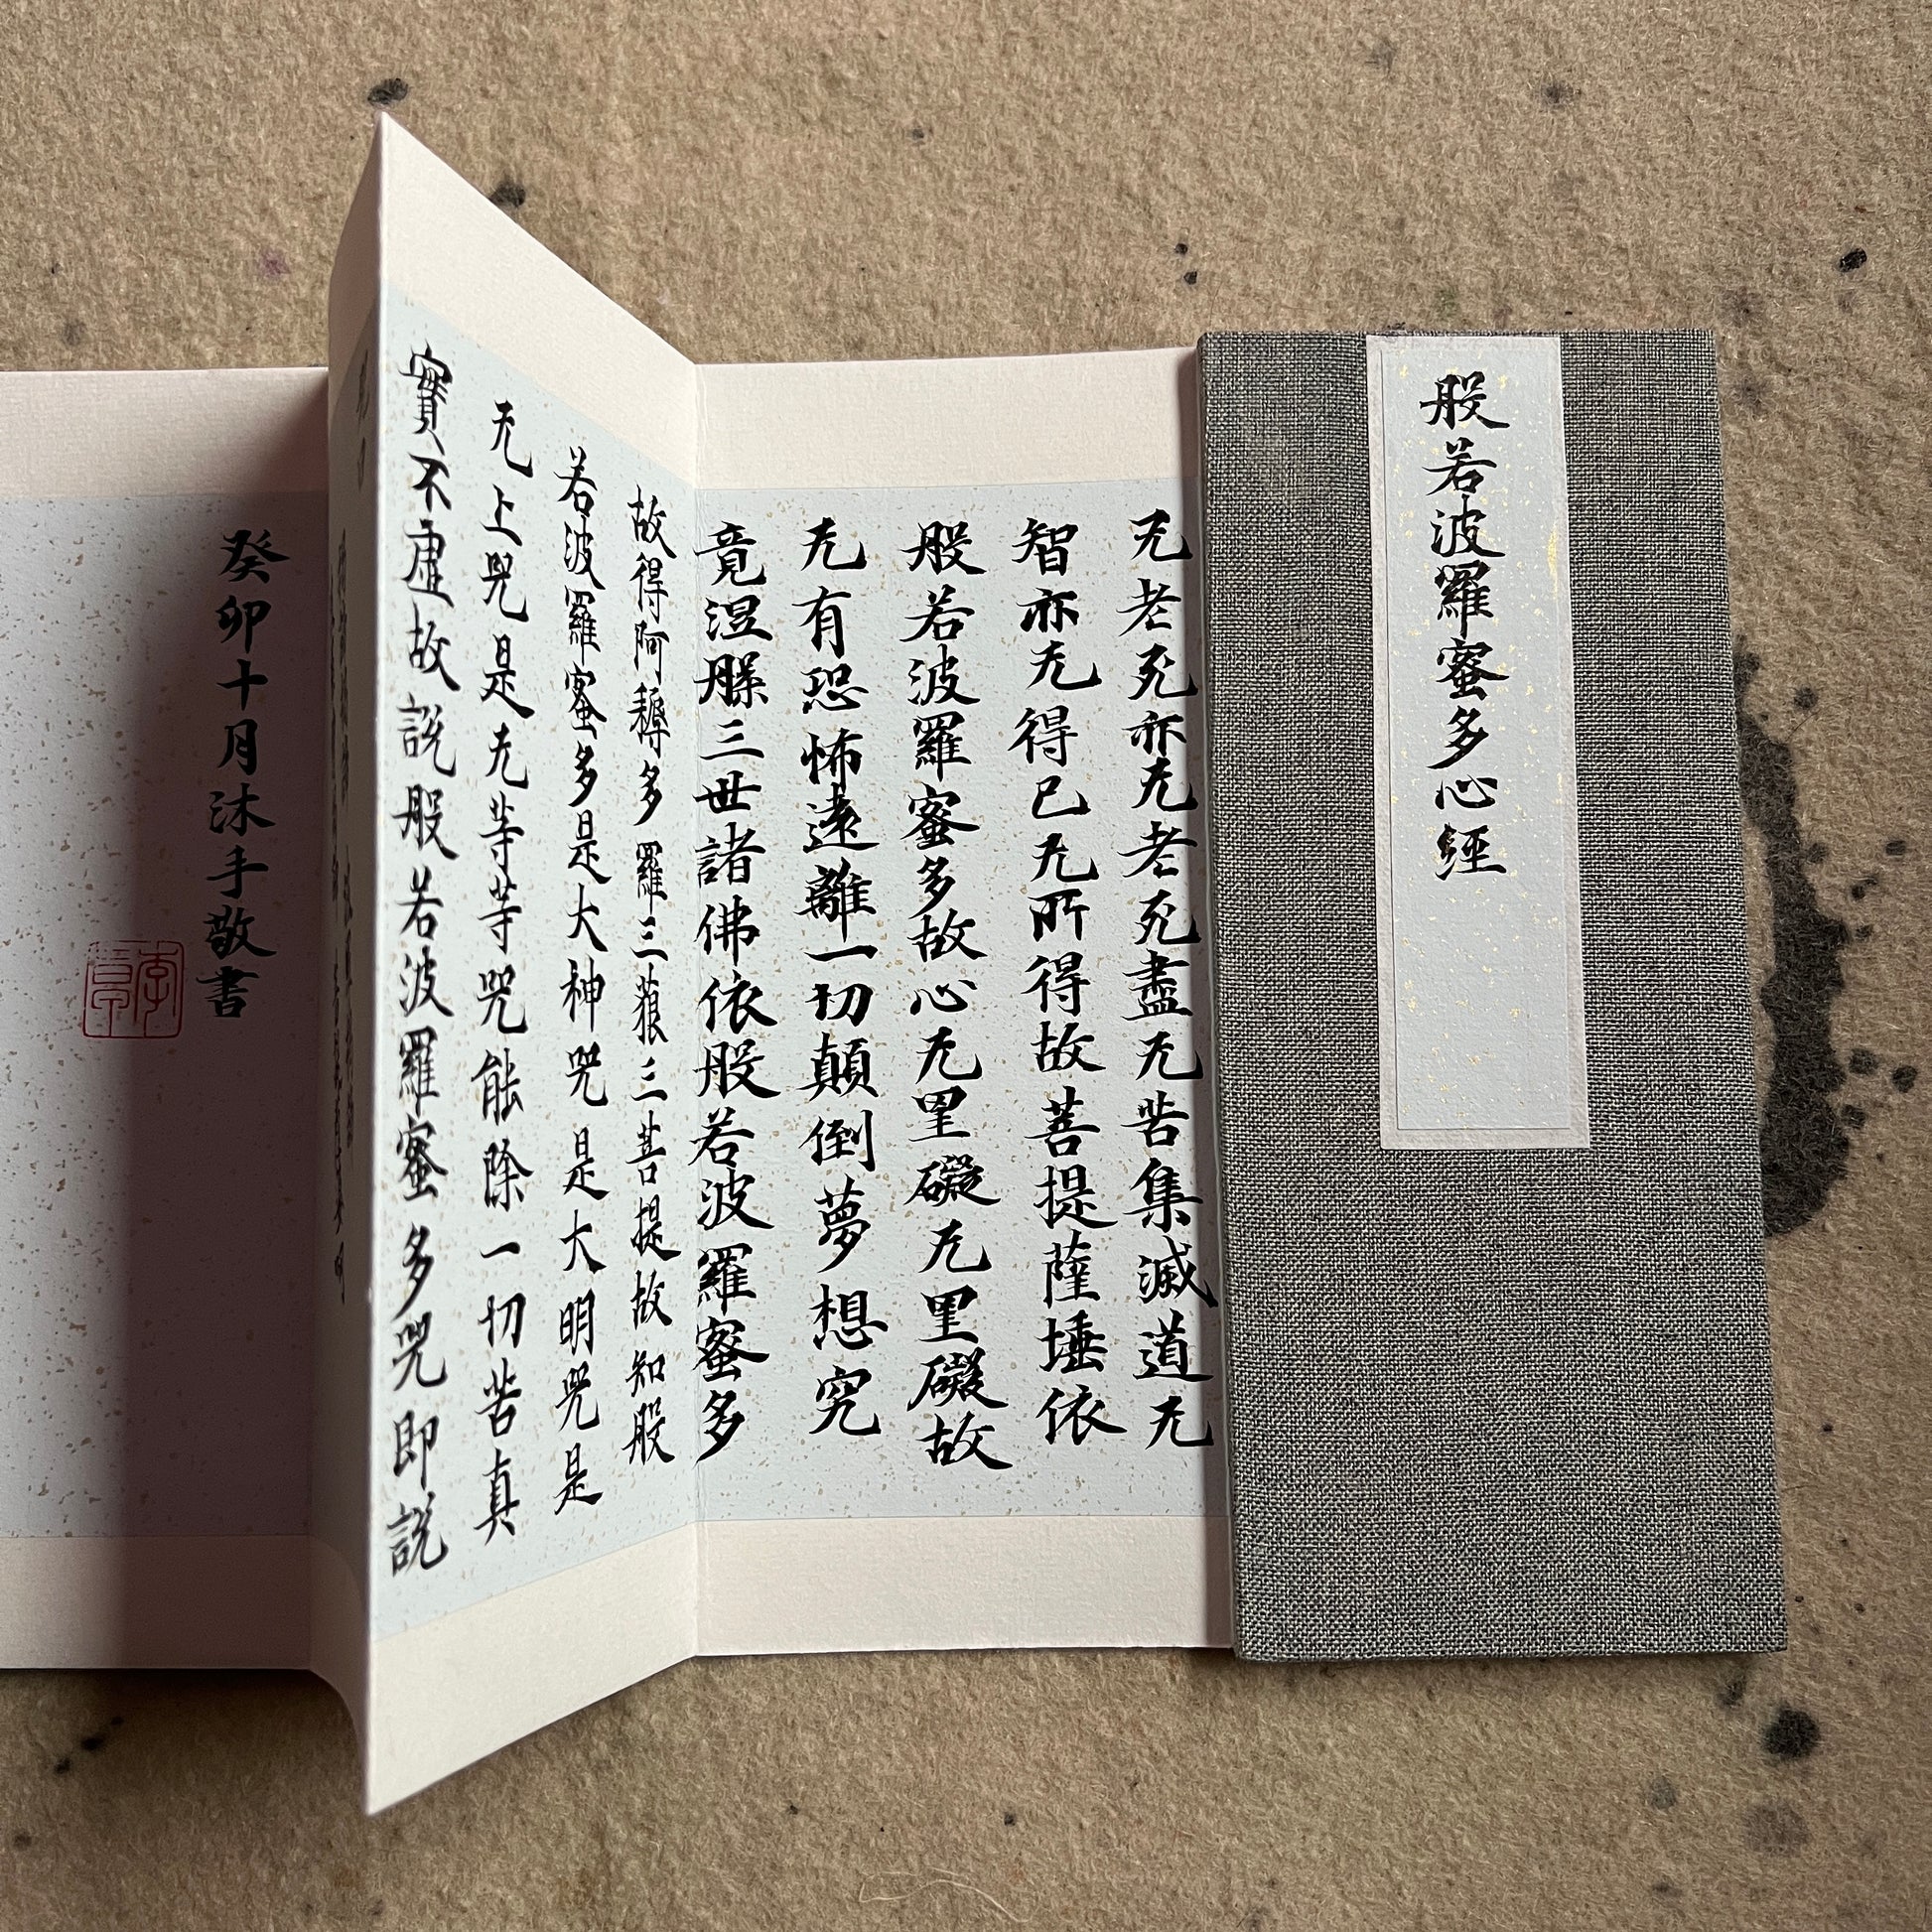 般若波羅蜜多心經
无老死亦无老死盡无苦集滅道无
智亦无得已无所得故菩提薩埵依
般若波羅蜜多故心无罣礙无罣礙故
无有恐怖遠離一切顛倒夢想究
竟涅槃三世諸佛依般若波羅蜜多
故得阿耨多羅三藐三菩提故知般
若波羅蜜多是大神咒是大明咒是
无上咒是无等等咒能除一切苦真
實不虛故說般若波羅蜜多咒即說
癸卯十月沐手敬書